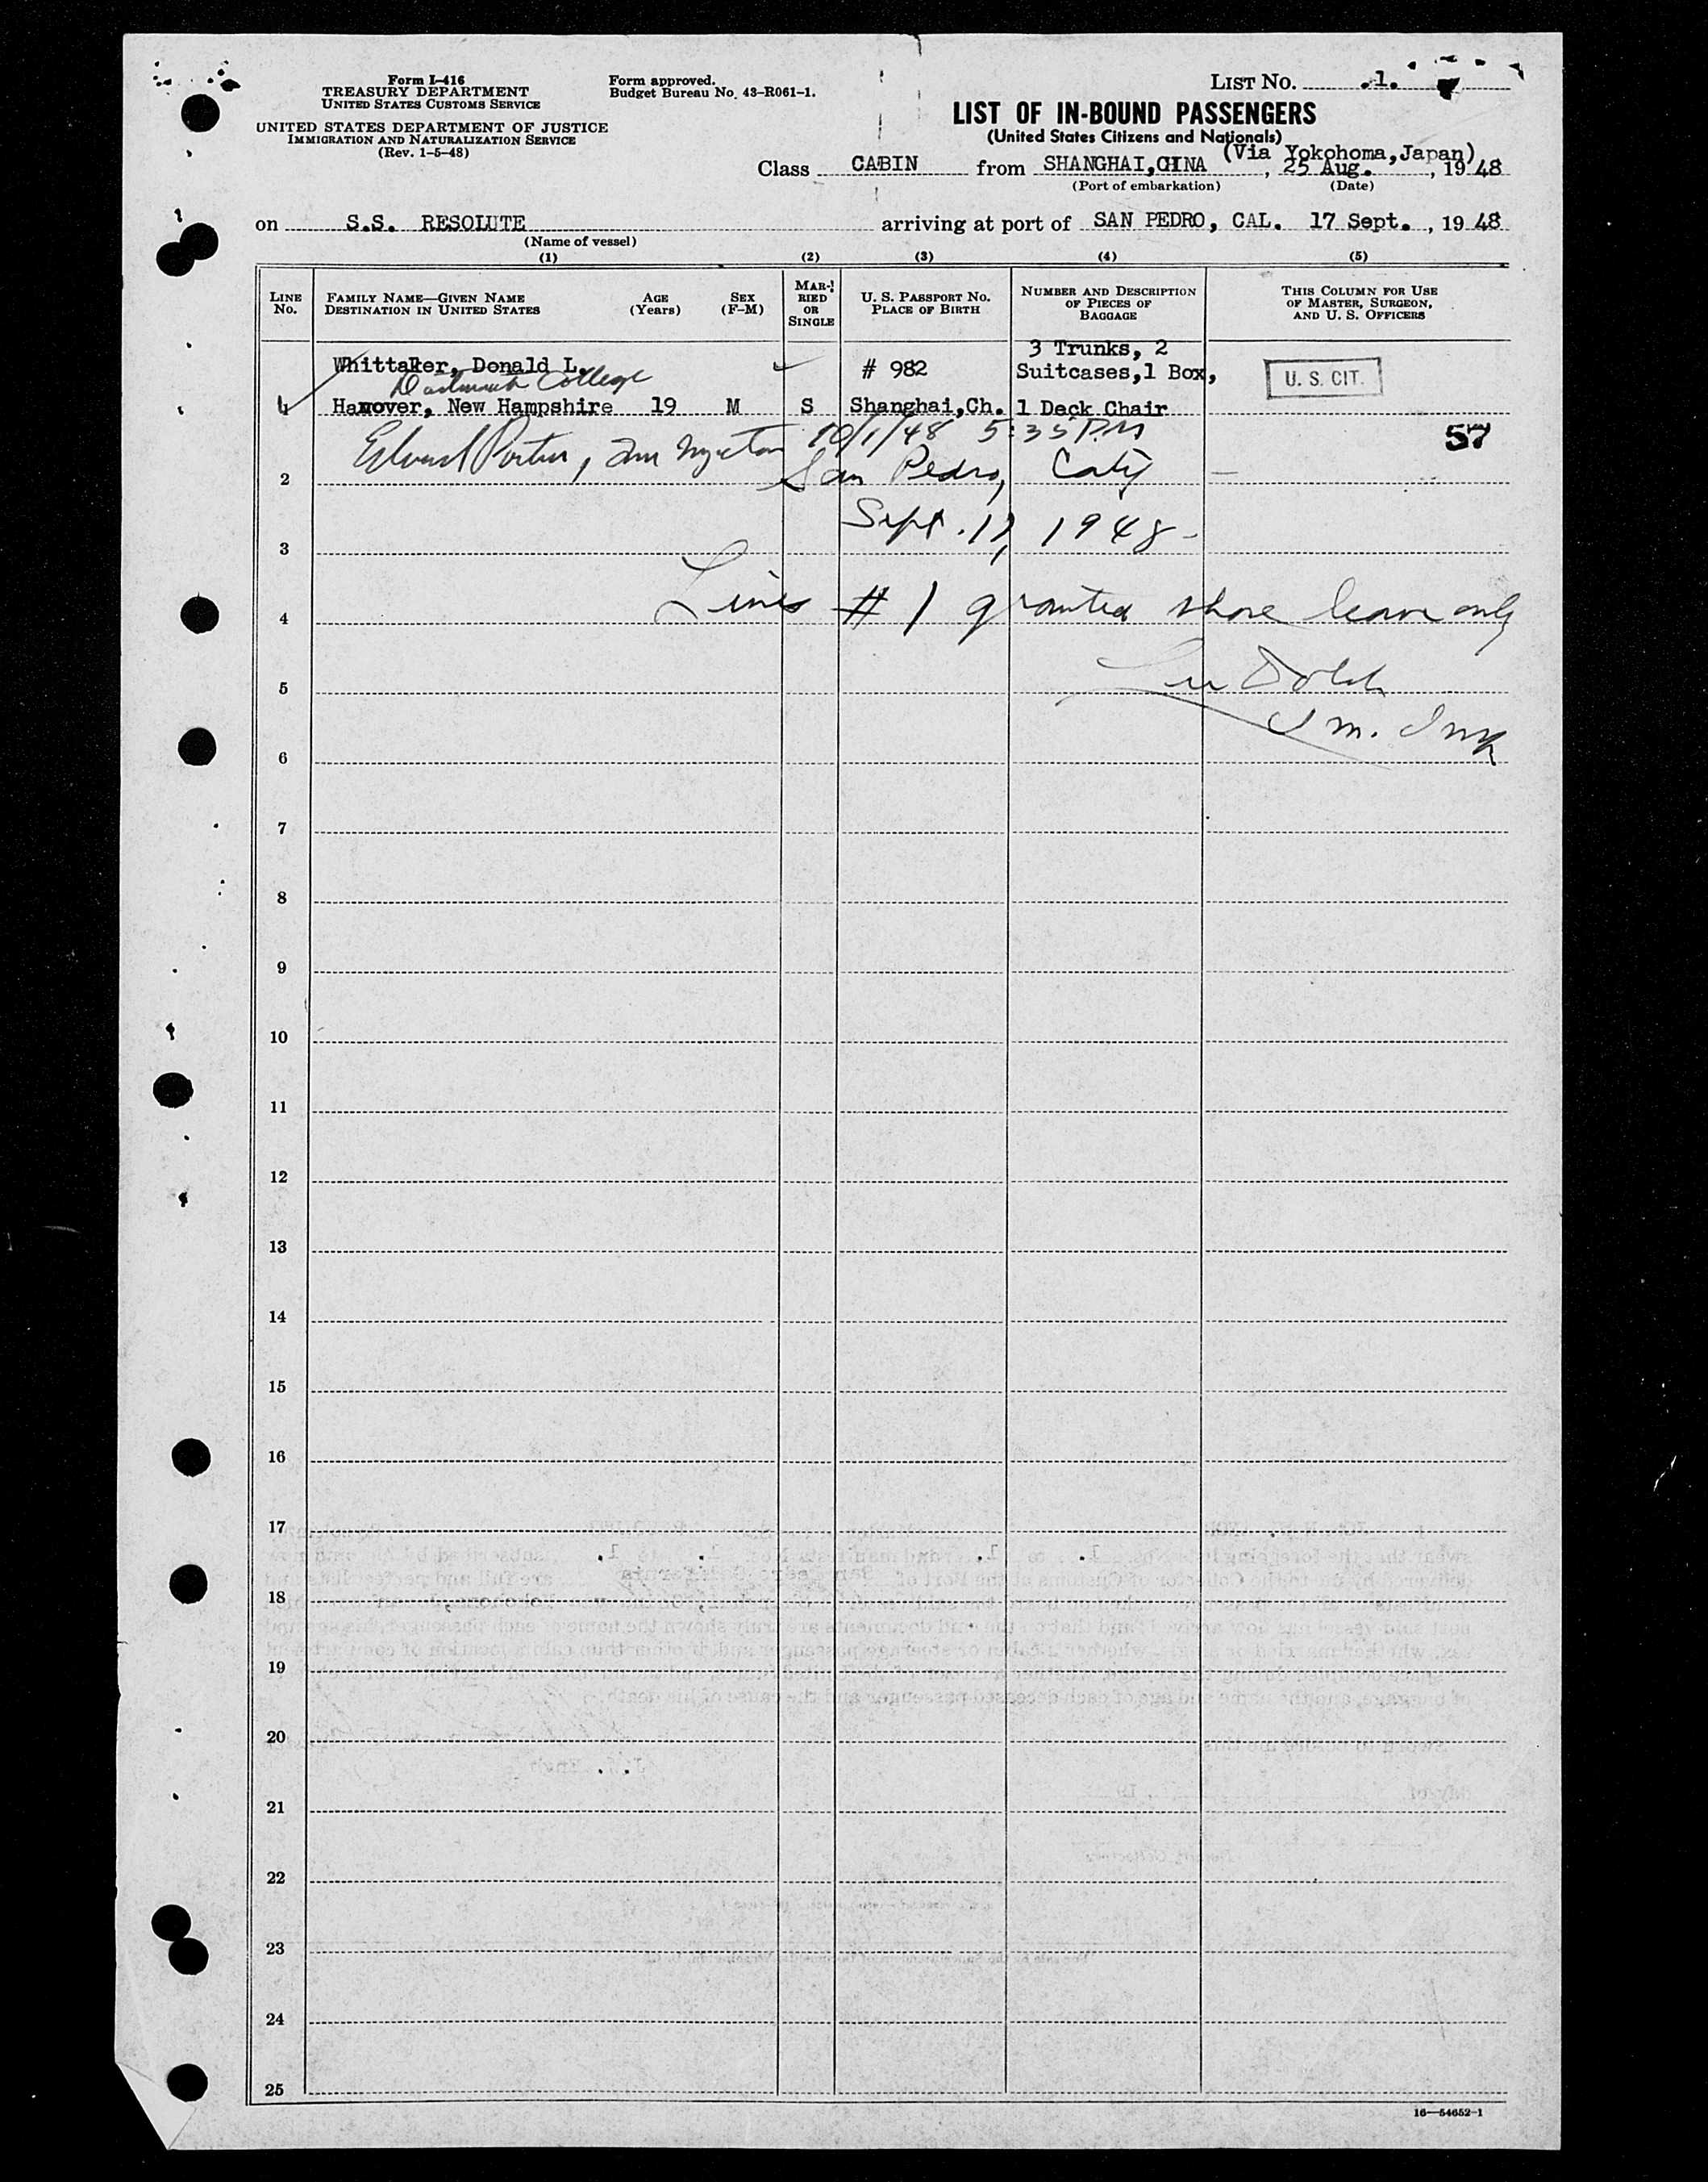 Form I-416
TREASURY DEPARTMENT
UNITED STATES CUSTOMS SERVICE
UNITED STATES DEPARTMENT OF JUSTICE
IMMIGRATION AND NATURALIZATION SERVICE
(Rev. 1-5-48)
Form approved.
Budget Bureau No. 43-R061-1.
LIST NO. 1.
LIST OF IN-BOUND PASSENGERS
(United States Citizens and Nationals)
(Via Yokohoma,Japan)
Class CABIN from SHANGHAI,CHINA, 25 Aug., 1948
(Port of embarkation) (Date)
on S.S. RESOLUTE arriving at port of SAN PEDRO, CAL. 17 Sept., 1948
(Name of vessel)
(1) (2) (3) (4) (5)
LINE NO.
FAMILY NAME—GIVEN NAME
DESTINATION IN UNITED STATES
AGE (Years)
SEX (F-M)
MARRIED OR SINGLE
U. S. PASSPORT NO.
PLACE OF BIRTH
NUMBER AND DESCRIPTION OF PIECES OF BAGGAGE
THIS COLUMN FOR USE OF MASTER, SURGEON, AND U. S. OFFICERS
Whittaker, Donald L. # 982 3 Trunks, 2 Suitcases,1 Box,
U. S. CIT.
Dartmouth College
Hanover, New Hampshire 19 M S Shanghai,Ch. 1 Deck Chair
Edward Porter, Imm Inspector 10/1/48 5:35 P.M
57
2 San Pedro, Calif
3 Sept. 17, 1948 -
4 Line # 1 granted shore leave only
5
Im. Insp
6
7
8
9
10
11
12
13
14
15
16
17
18
19
20
21
22
23
24
25
16—54652-1